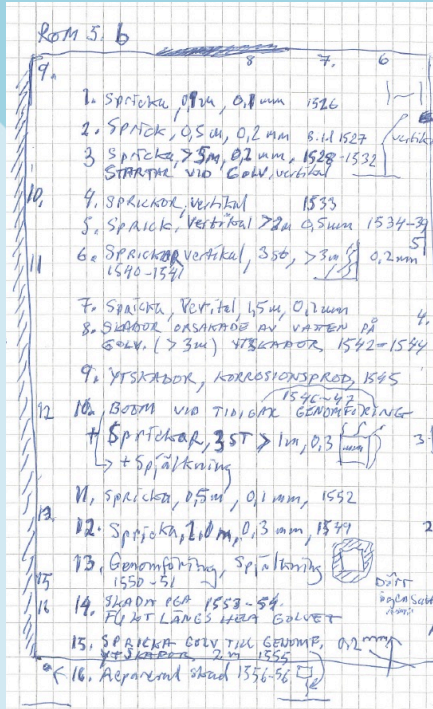 ROM 5. b
9. 8 7. 6
1. Spricka, 1m, 0,1 mm 1526
2. Sprick, 0,5m, 0,2 mm 1527
vertikal
3 Spricka, >5m, 0,2 mm, 1528-1532
STARTAR VID GOLV, vertikal
10,
4. SPRICKOR, vertikal 1533
5. SPRICK, vertikal >2m 0,5mm 1534-39
5
11
6. SPRICKOR vertikal, 3st, >3m 0,2mm
1540-1541
7. Spricka, Vertikal, 1,5m, 0,2mm
4.
8. SKADOR ORSAKADE AV VATTEN PÅ
GOLV. (>3m) YTSKADOR 1542-1544
9. YTSKADOR, KORROSIONSPROD, 1545
1546-47
12 10. BOOM VID TIDIGAR GENOMFÖRING
+ Sprickar, 3ST > 1m, 0,3
3
+ Spjälkning
11. Spricka, 0,5m, 0,1 mm, 1552
13.
12. Spricka, 2,0m, 0,3 mm, 1549
2
13. Genomföring, Spjälkning
1550-51
15
16 14. SKADOR PGA 1553-54.
LÄNGS HELA GOLVET
15. SPRICKA GOLV TILL GENOMF, 0,2mm
YTSKADOR, 2m 1555
16. Reparerad skad 1556-56